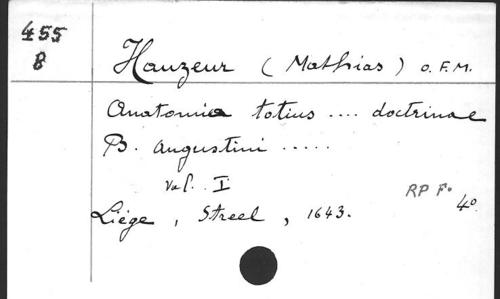 455
B
Hauzeur (Mathias) O.F.M.
Anatomia totius .... doctrinae
B. Augustini .....
Vol. I
RP F. 4º
Liège, Streel, 1643.